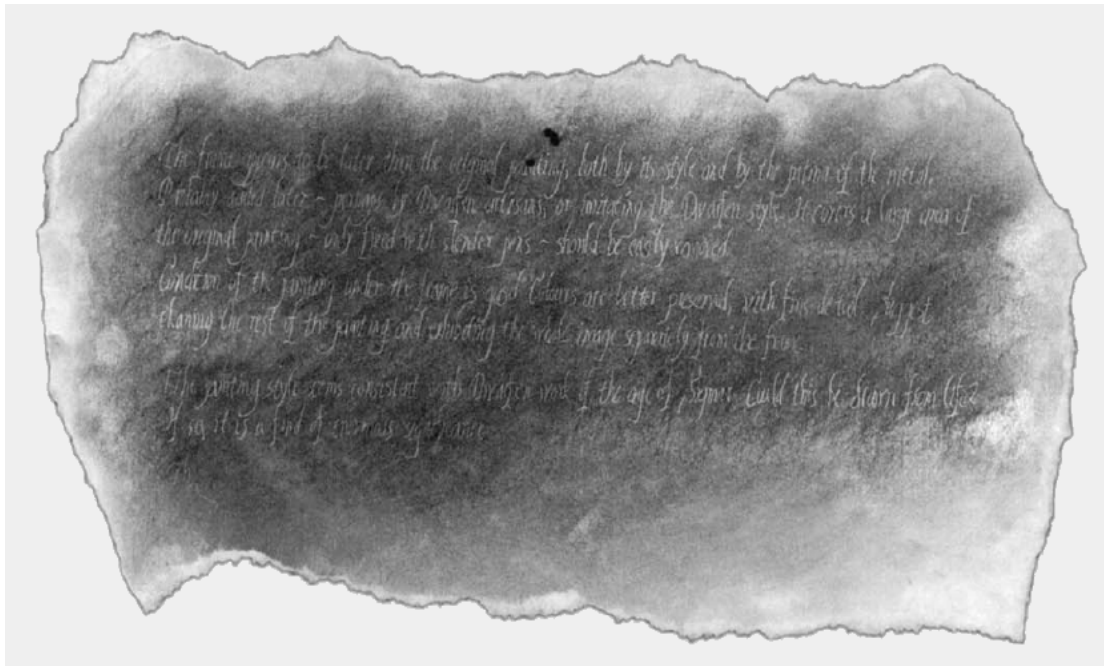 The frame seems to be later than the original painting, both by its style and by the patina of the metal.
Probably added later ~ possibly by Dwarfen artisans, or imitating the Dwarfen style. It covers a large area of
the original painting ~ only fixed with slender pins ~ should be easily removed.
Condition of the painting under the frame is good. Colours are better preserved, with fine detail. Suggest
cleaning the rest of the painting and exhibiting the whole image separately from the frame.
The painting style seems consistent with Dwarfen work of the age of Sigmar. Could this be drawn from life?
If so, it is a find of enormous significance.